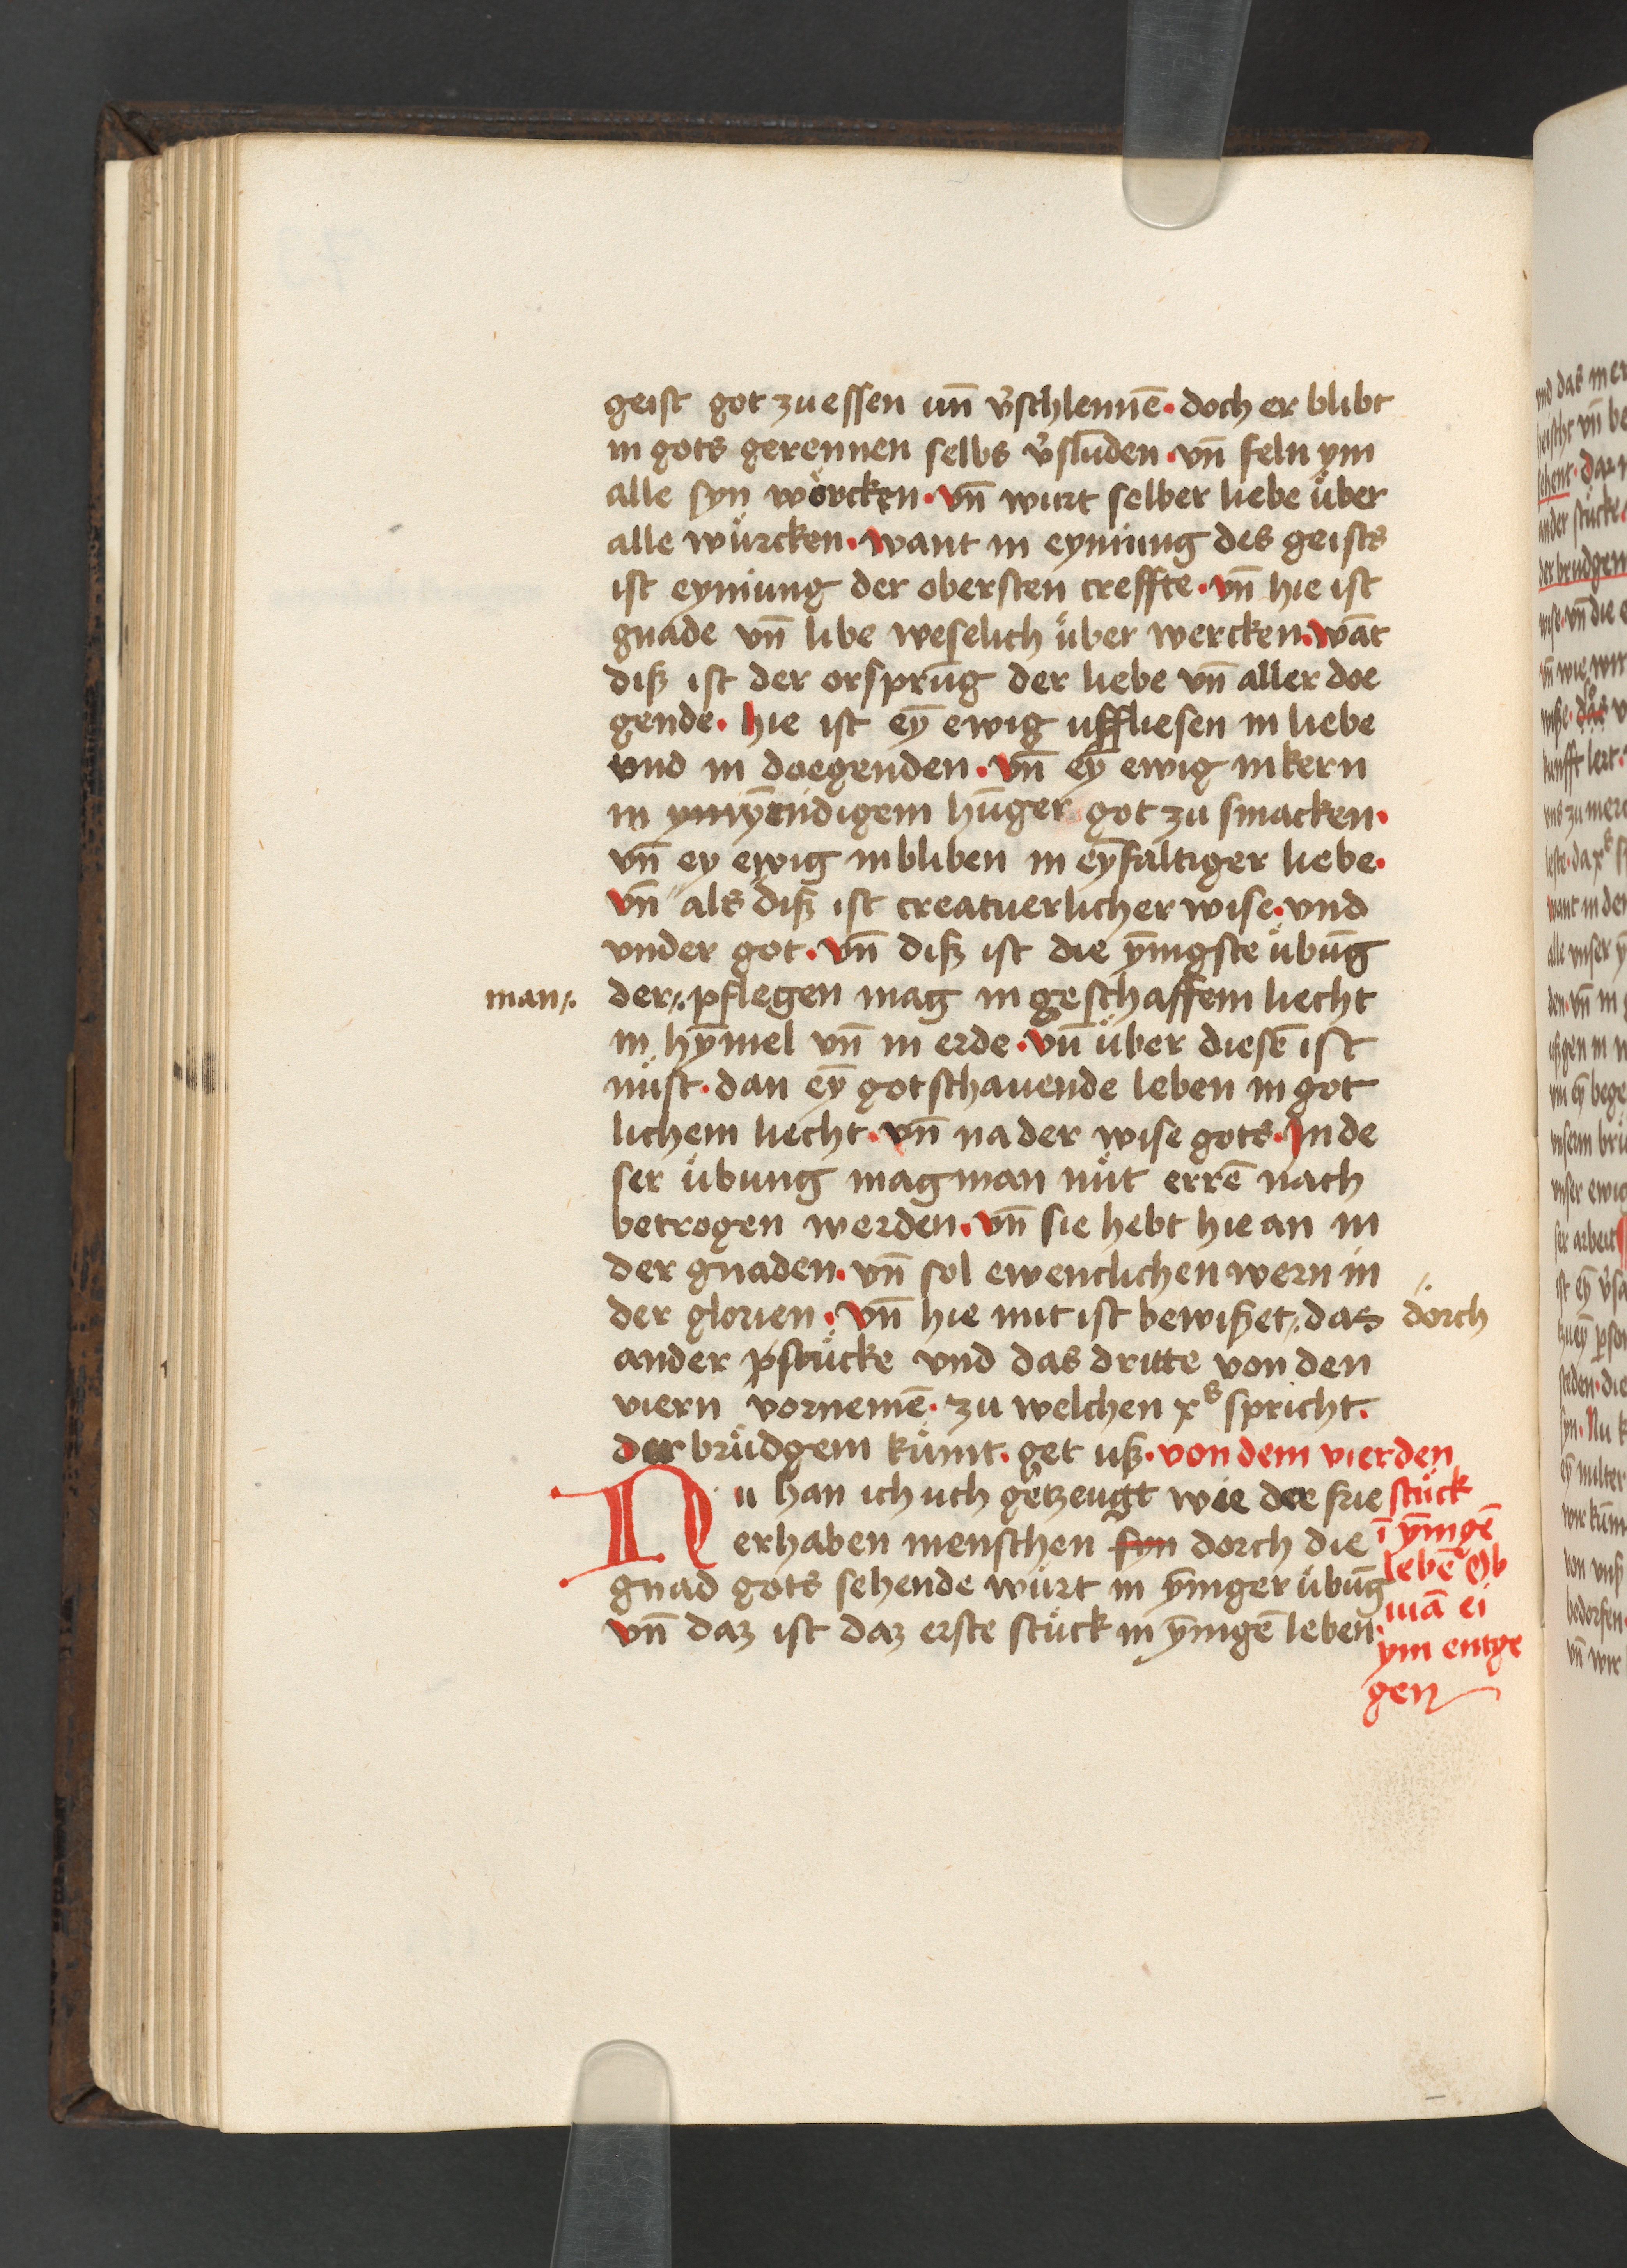 geist got zu essen un̄ v̓schlennē · doch er blibt
in gots gerennen selbs v̓slūden · vn̄ feln ym
alle syn wörcken · Vn̄ wurt selber liebe über
alle würcken · want in eyniūng des geists
ist eyniūng der obersten creffte · vn̄ hie ist
gnade vn̄ libe weselich über wercken · wāt
diß ist der orsprūg der liebe vn̄ aller doe
gende · hie ist eȳ ewig uffliesen in liebe
vnd in doegenden · vn̄ eȳ ewig in kern
in hūnger got zu smacken ·
vn̄ ey ewig in bliben in eȳfaltiger liebe ·
vn̄ als diß ist creatuerlicher wise · vnd
vnder got · vn̄ diß ist die ȳnigste übūg
man ·/·
der ·/· pflegen mag in geschaffem liecht
in hȳmel vn̄ in erde · vn̄ über diesē ist
nüst · dan eȳ got schauende leben in got
lichem liecht · vn̄ na der wise gots · In de
ser übung mag man nüt errē nach
betrogen werden · vn̄ sie hebt hie an in
der gnaden · vn̄ sol ewenclichen wern in
der glorien · vn̄ hie mit ist bewißet ·/· das
·/· dorch
ander pstücke vnd das dritte von den
viern vornemē · zu welchen xꝰ spricht ·
der brüdgem kümt · get uß · von dem vierden
stück
ī ȳnigē
lebē Ob
mā ei
ym entge
gen
Nu han ich uch getzeugt wie der frie
erhaben menschen syn dorch die
gnad gots sehende würt in ȳniger übūg
vn̄ daz ist daz erste stück in ȳnigē leben ·